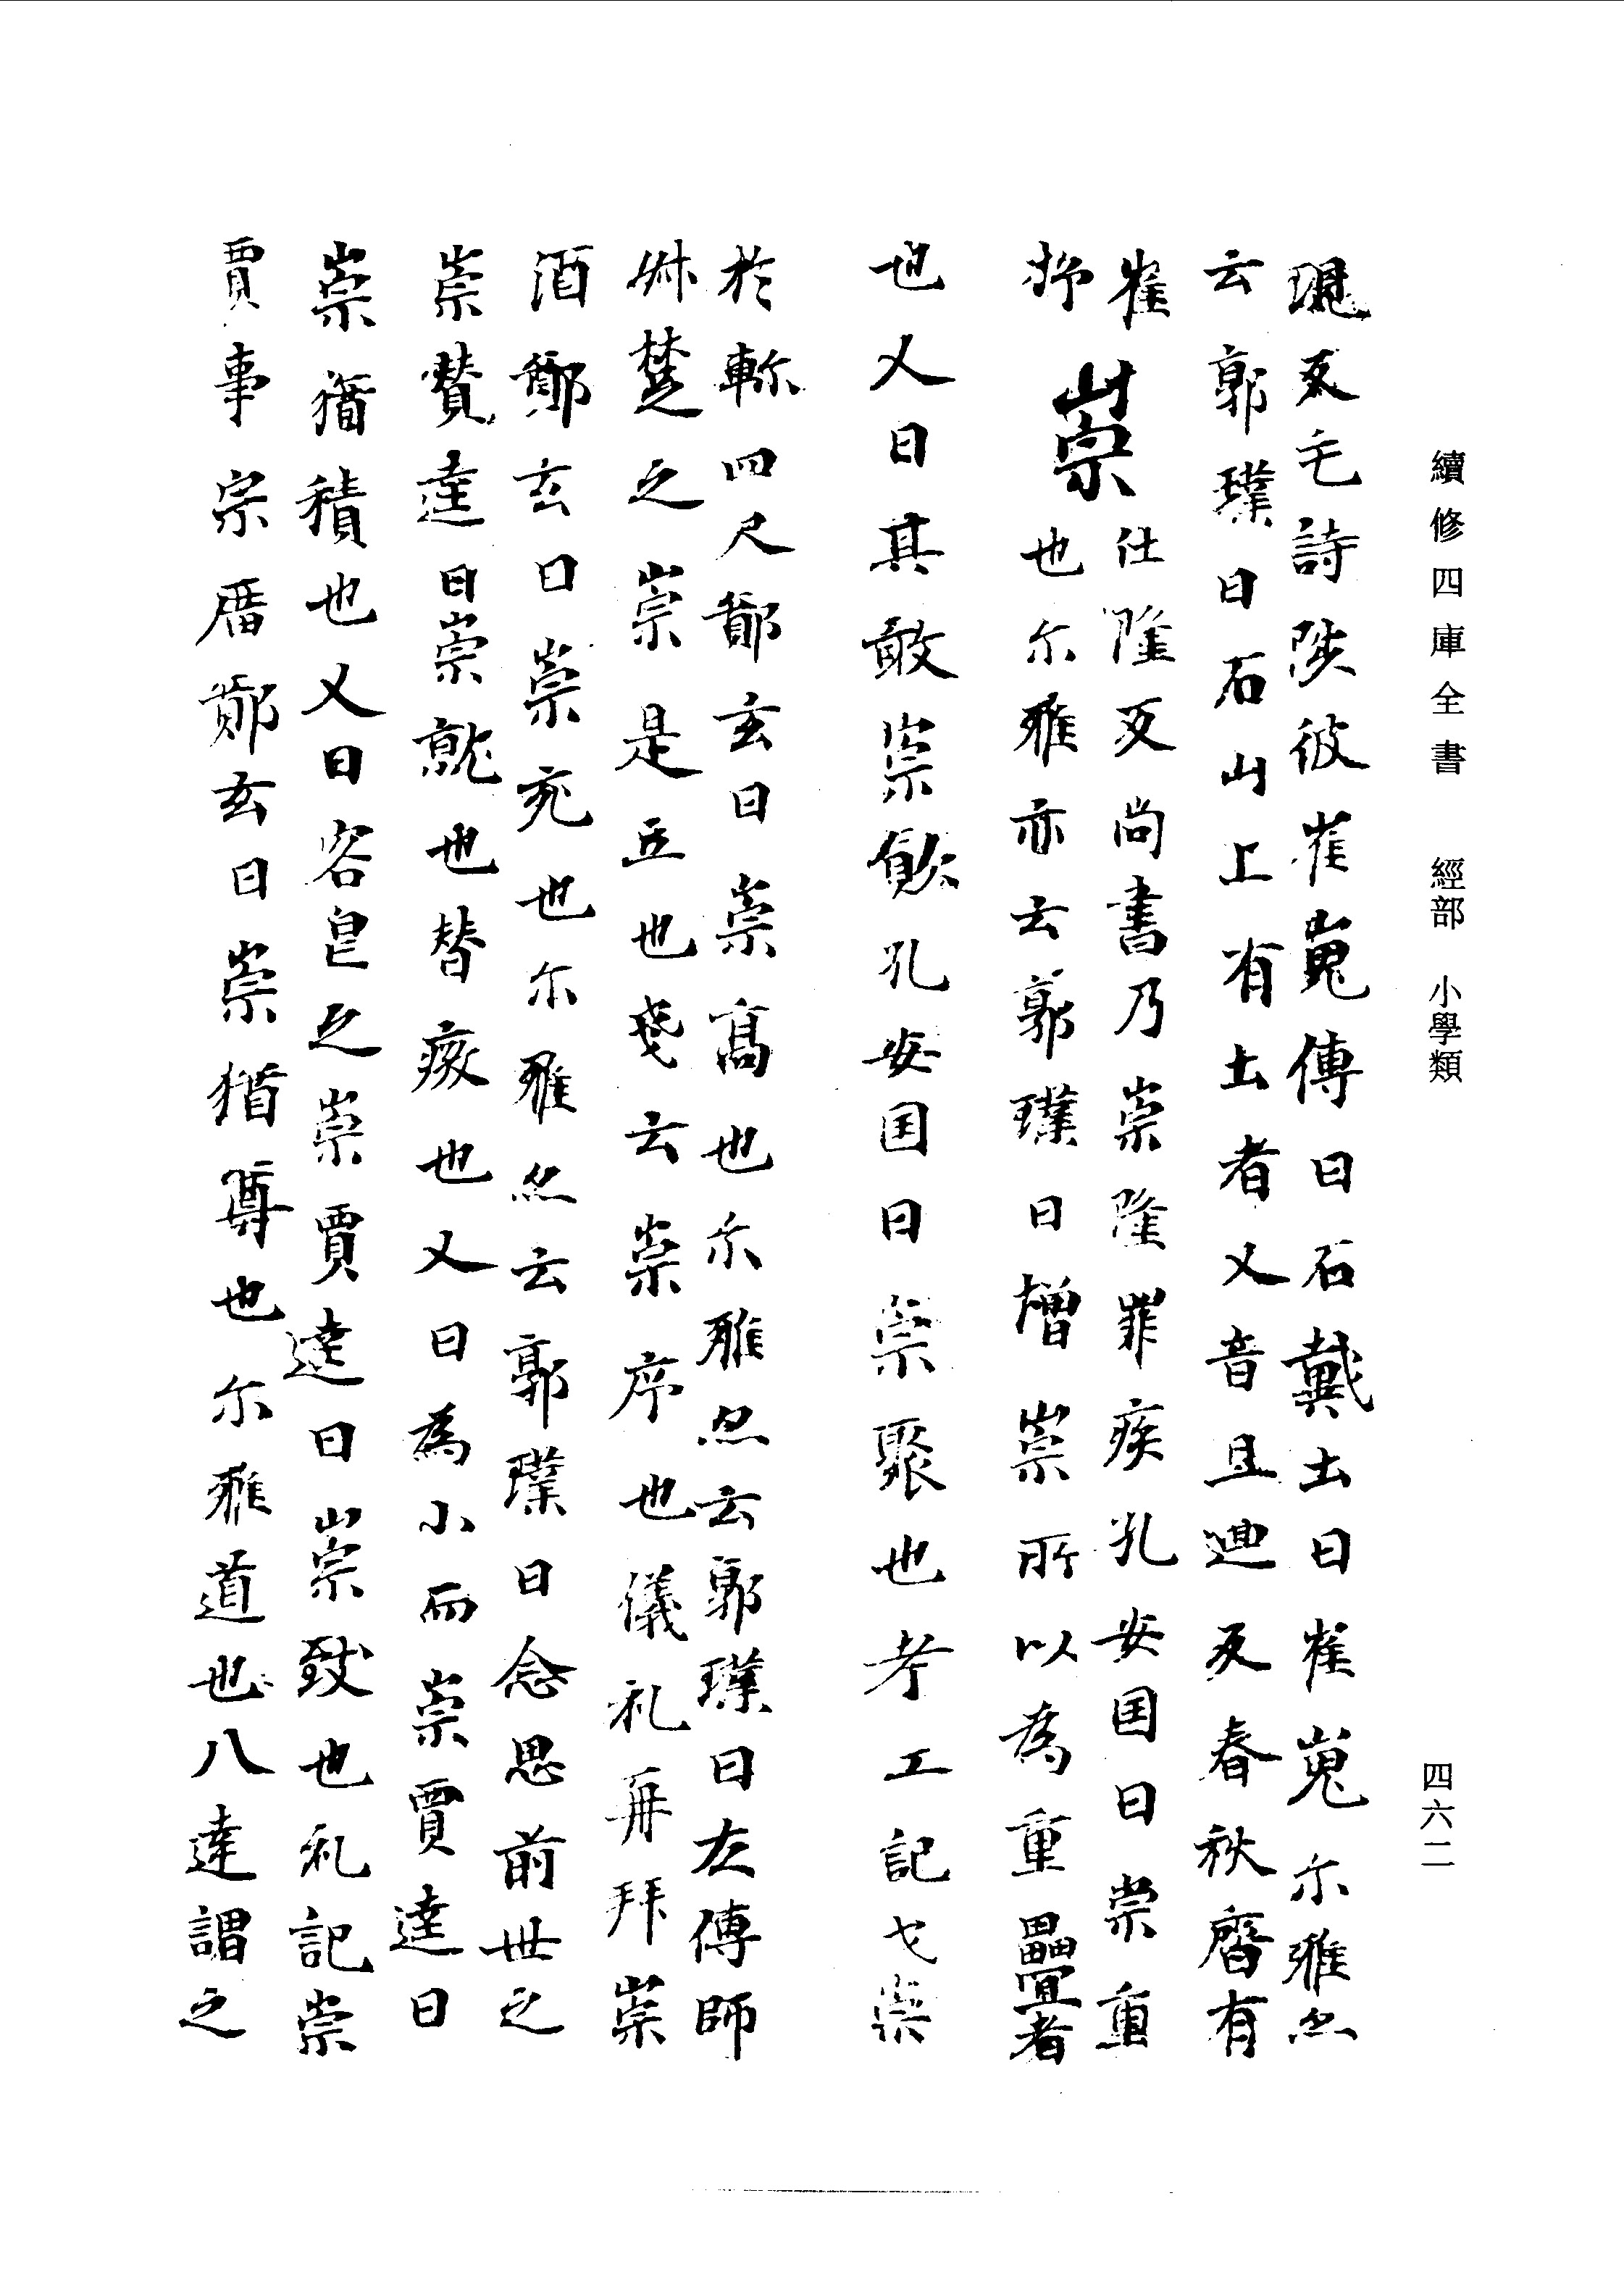 續修四庫全書 經部 小學類
四六二
瑰反毛詩陟彼崔嵬傳曰石戴土曰崔嵬尓雅亦
云郭璞曰石山上有土者又音且迴反春秋齊有
崔杼
崇
仕隆反尚書乃崇隆罪疾孔安国曰崇重
也尓雅亦云郭璞曰增崇所以為重疊者
也又曰其敢崇飲孔安国曰崇聚也考工記戈崇
於軫四尺鄭玄曰崇高也尓雅亦云郭璞曰左傳師
叔楚之崇是立也戔云崇序也儀礼再拜崇
酒鄭玄曰崇充也尓雅亦云郭璞曰念思前世之
崇賛逹曰崇就也替癈也又曰為小而崇賈逹曰
崇猶積也又曰容皀之崇賈逹曰崇致也礼記崇
賈事宗厝鄭玄曰崇猶尊也尓雅道也八逹謂之